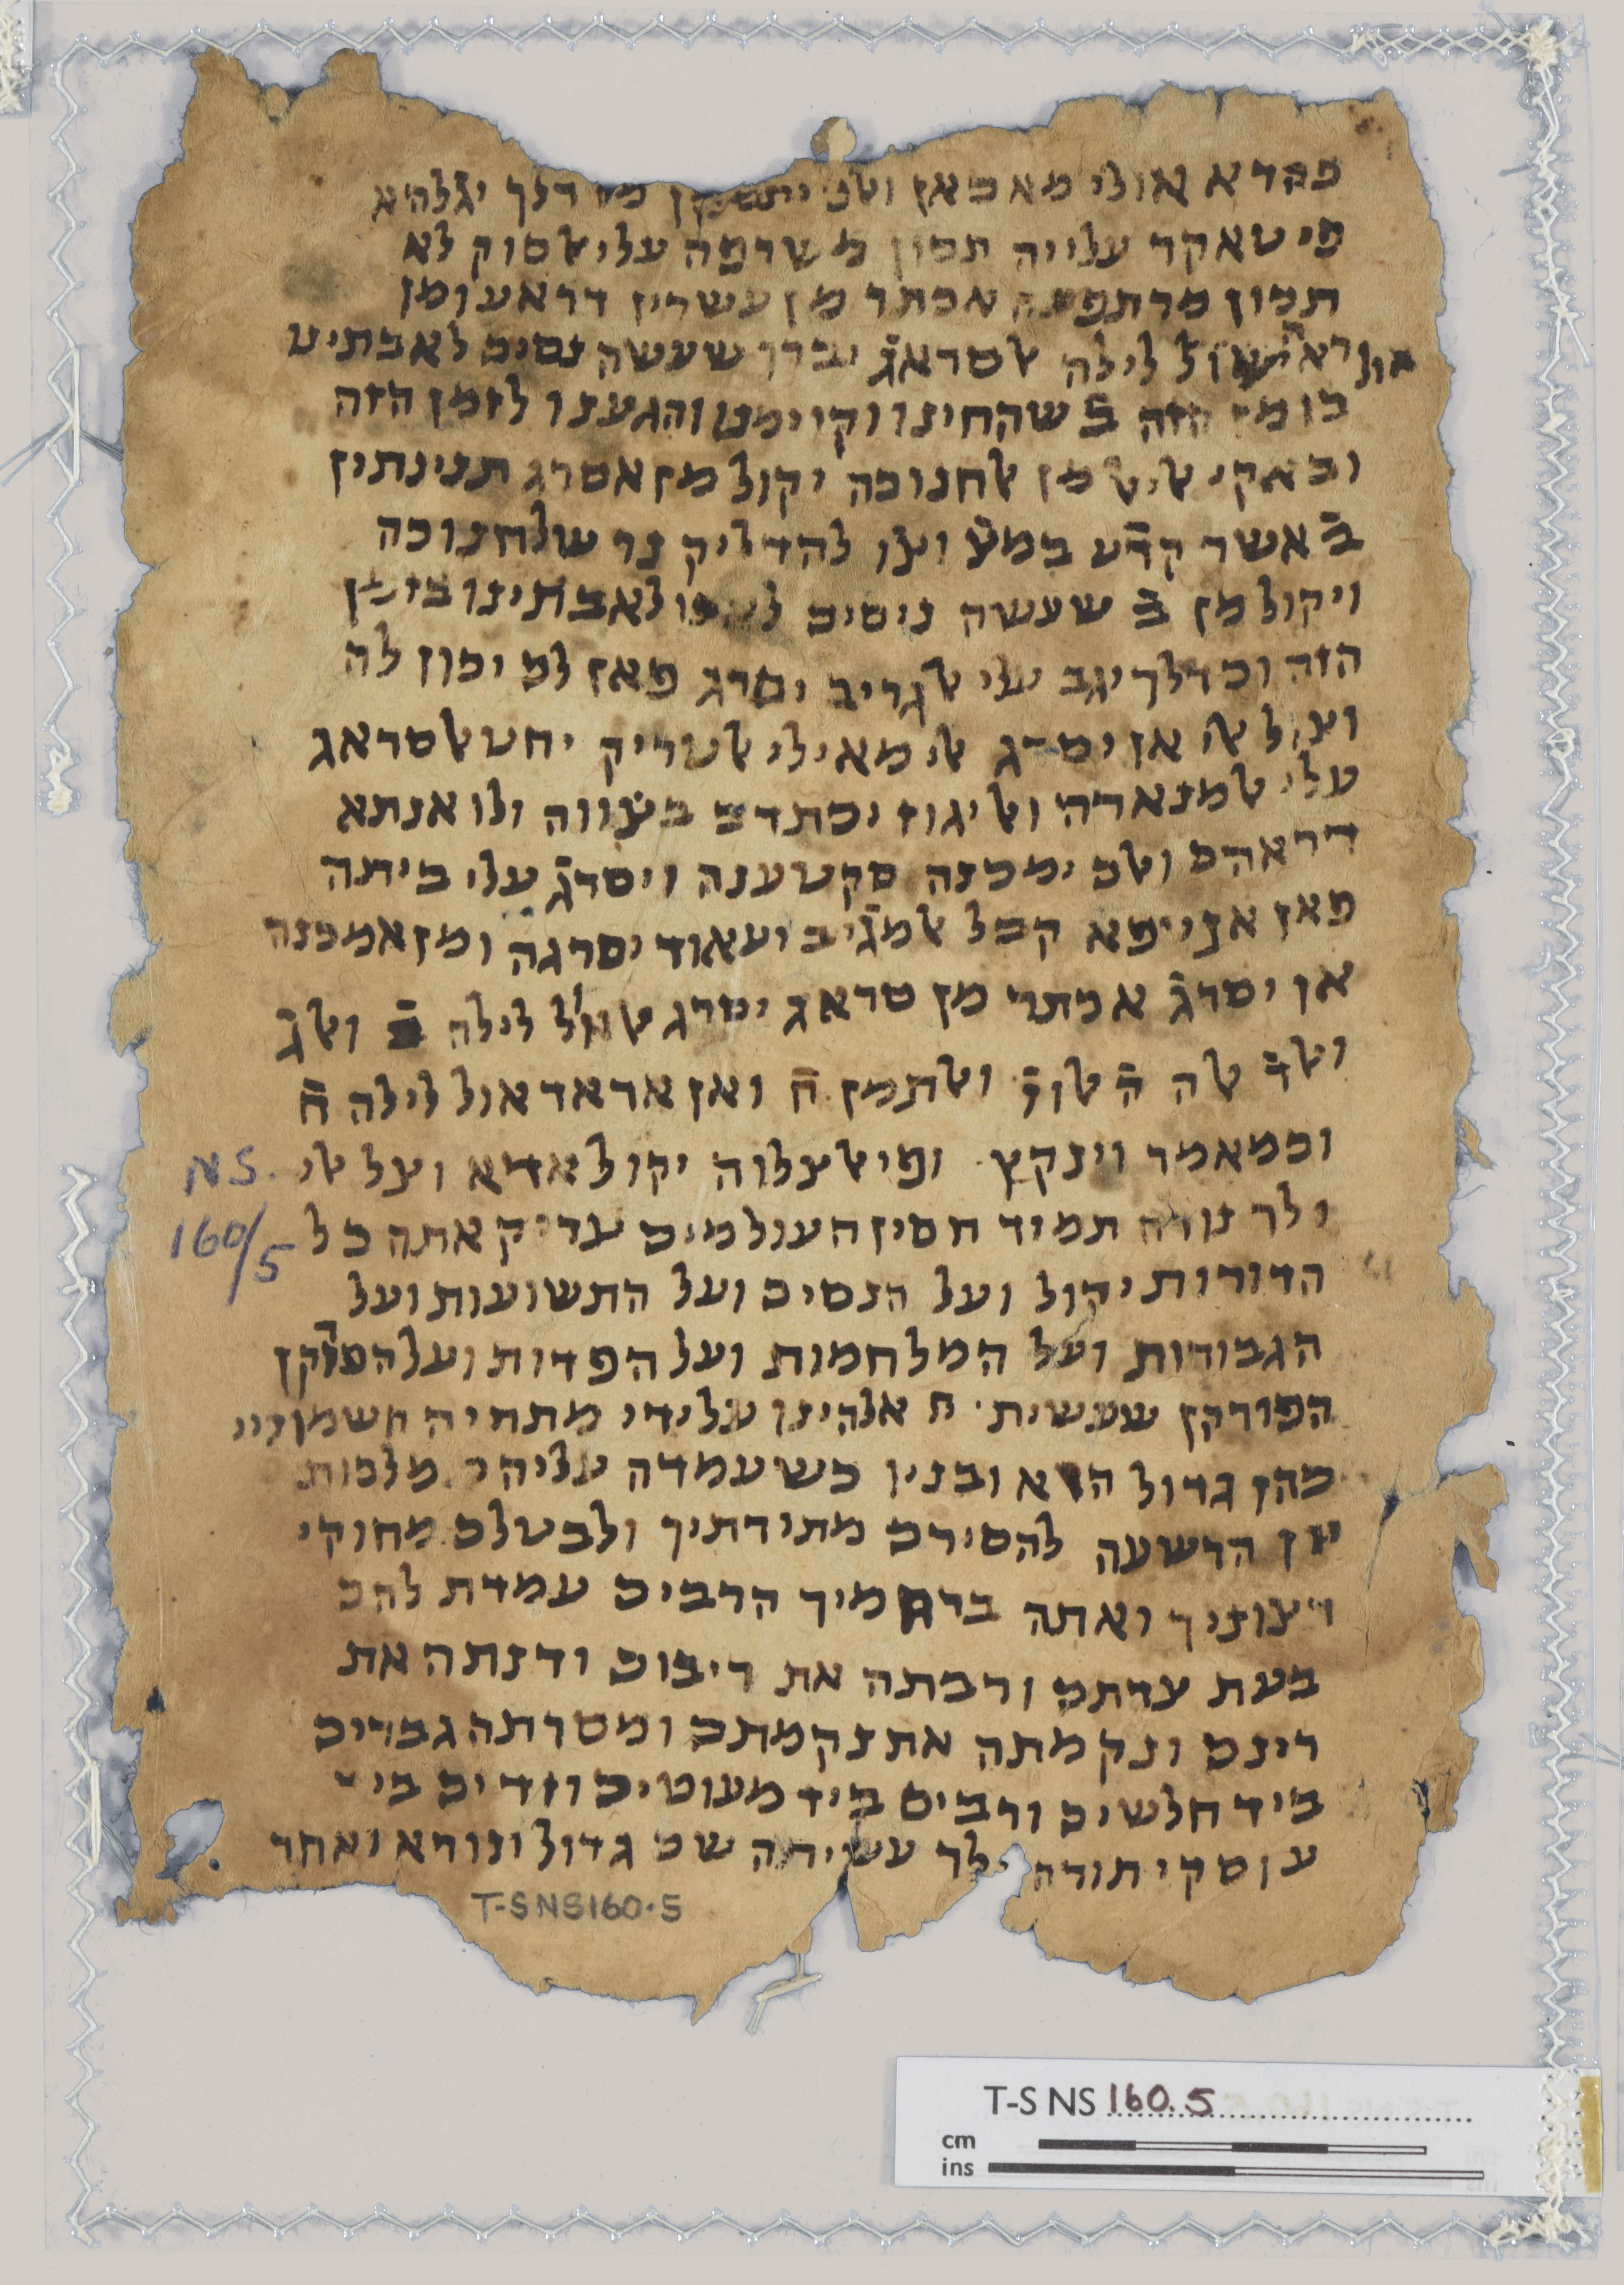 פהדא אולי מא כאן ואלי ען דלך יגלהא
פי טאקה עלייה תכון משרפה עלי אלסוק לא
תכון מרתפעה אכתר מן עשרין דראע ומן
אול ראי אול לילה אלסראג יברך שעשה נסים לאבתינו
בזמן הזה ב שהחינו וקוימנו והגענו לזמן הזה
ובאקי אליאלי מן אלחנוכה יקול מן אסרג תנינתין
ב אשר קדש במצ וצו להדליק נר שלחנוכה
ויקול מן ב שעשה ניסים לאבתינו בזמן
הזה וכדלך יגב עלי אלגריב יסרג פאן לם יכון לה
וצול אלי אן יסרג אלי מא ילי אלטריק יחט אלסראג
עלי אלמנארה ואליגוז יסתדם בצווה ולו אנהא
דראהם ואלם ימכנה סקט ענה ויסרג עלי ביתה
פאן אנטפא קבל אלמגיב יעאוד יסרגה ומן אמכנה
אן יסרג אכתר מן סראג יסרג אלאול לילה ב ואלג
ואלד אלה ה אלו ו ואלתמן ח ואן אראד אול לילה ח
וכמא מר וינקץ ופי אלצלוה יקול אדא וצל אלי
ולך נודה תמיד חסין העולמים צדיק אתה כל
הדורות יקול ועל הנסים ועל התשועות ועל
הגבורות ועל המלחמות ועל הפדות ועל הפרקן
הפורקן שעשית ה אלהינו על ידי מתתיה חשמוניי
כהן גדול הוא ובניו כשעמדה עליהם מלכות
יון הרשעה להסירם מתורתיך ולבטלם מחוקי
רצוניך ואתה ברחמיך הרבים עמדת להם
בעת צרתם ורבתה את ריבום ודנתה את
דינם ונקמתה את נקמתם ומסרתה גבורים
ביד חלשים ורבים ביד מעוטים וזדים ביד
עוסקי תורה ולך עשיתה שם גדול ונורא ואחר
NS.
160/5
T-S NS 160.5
T-S NS 160.5
cm
ins